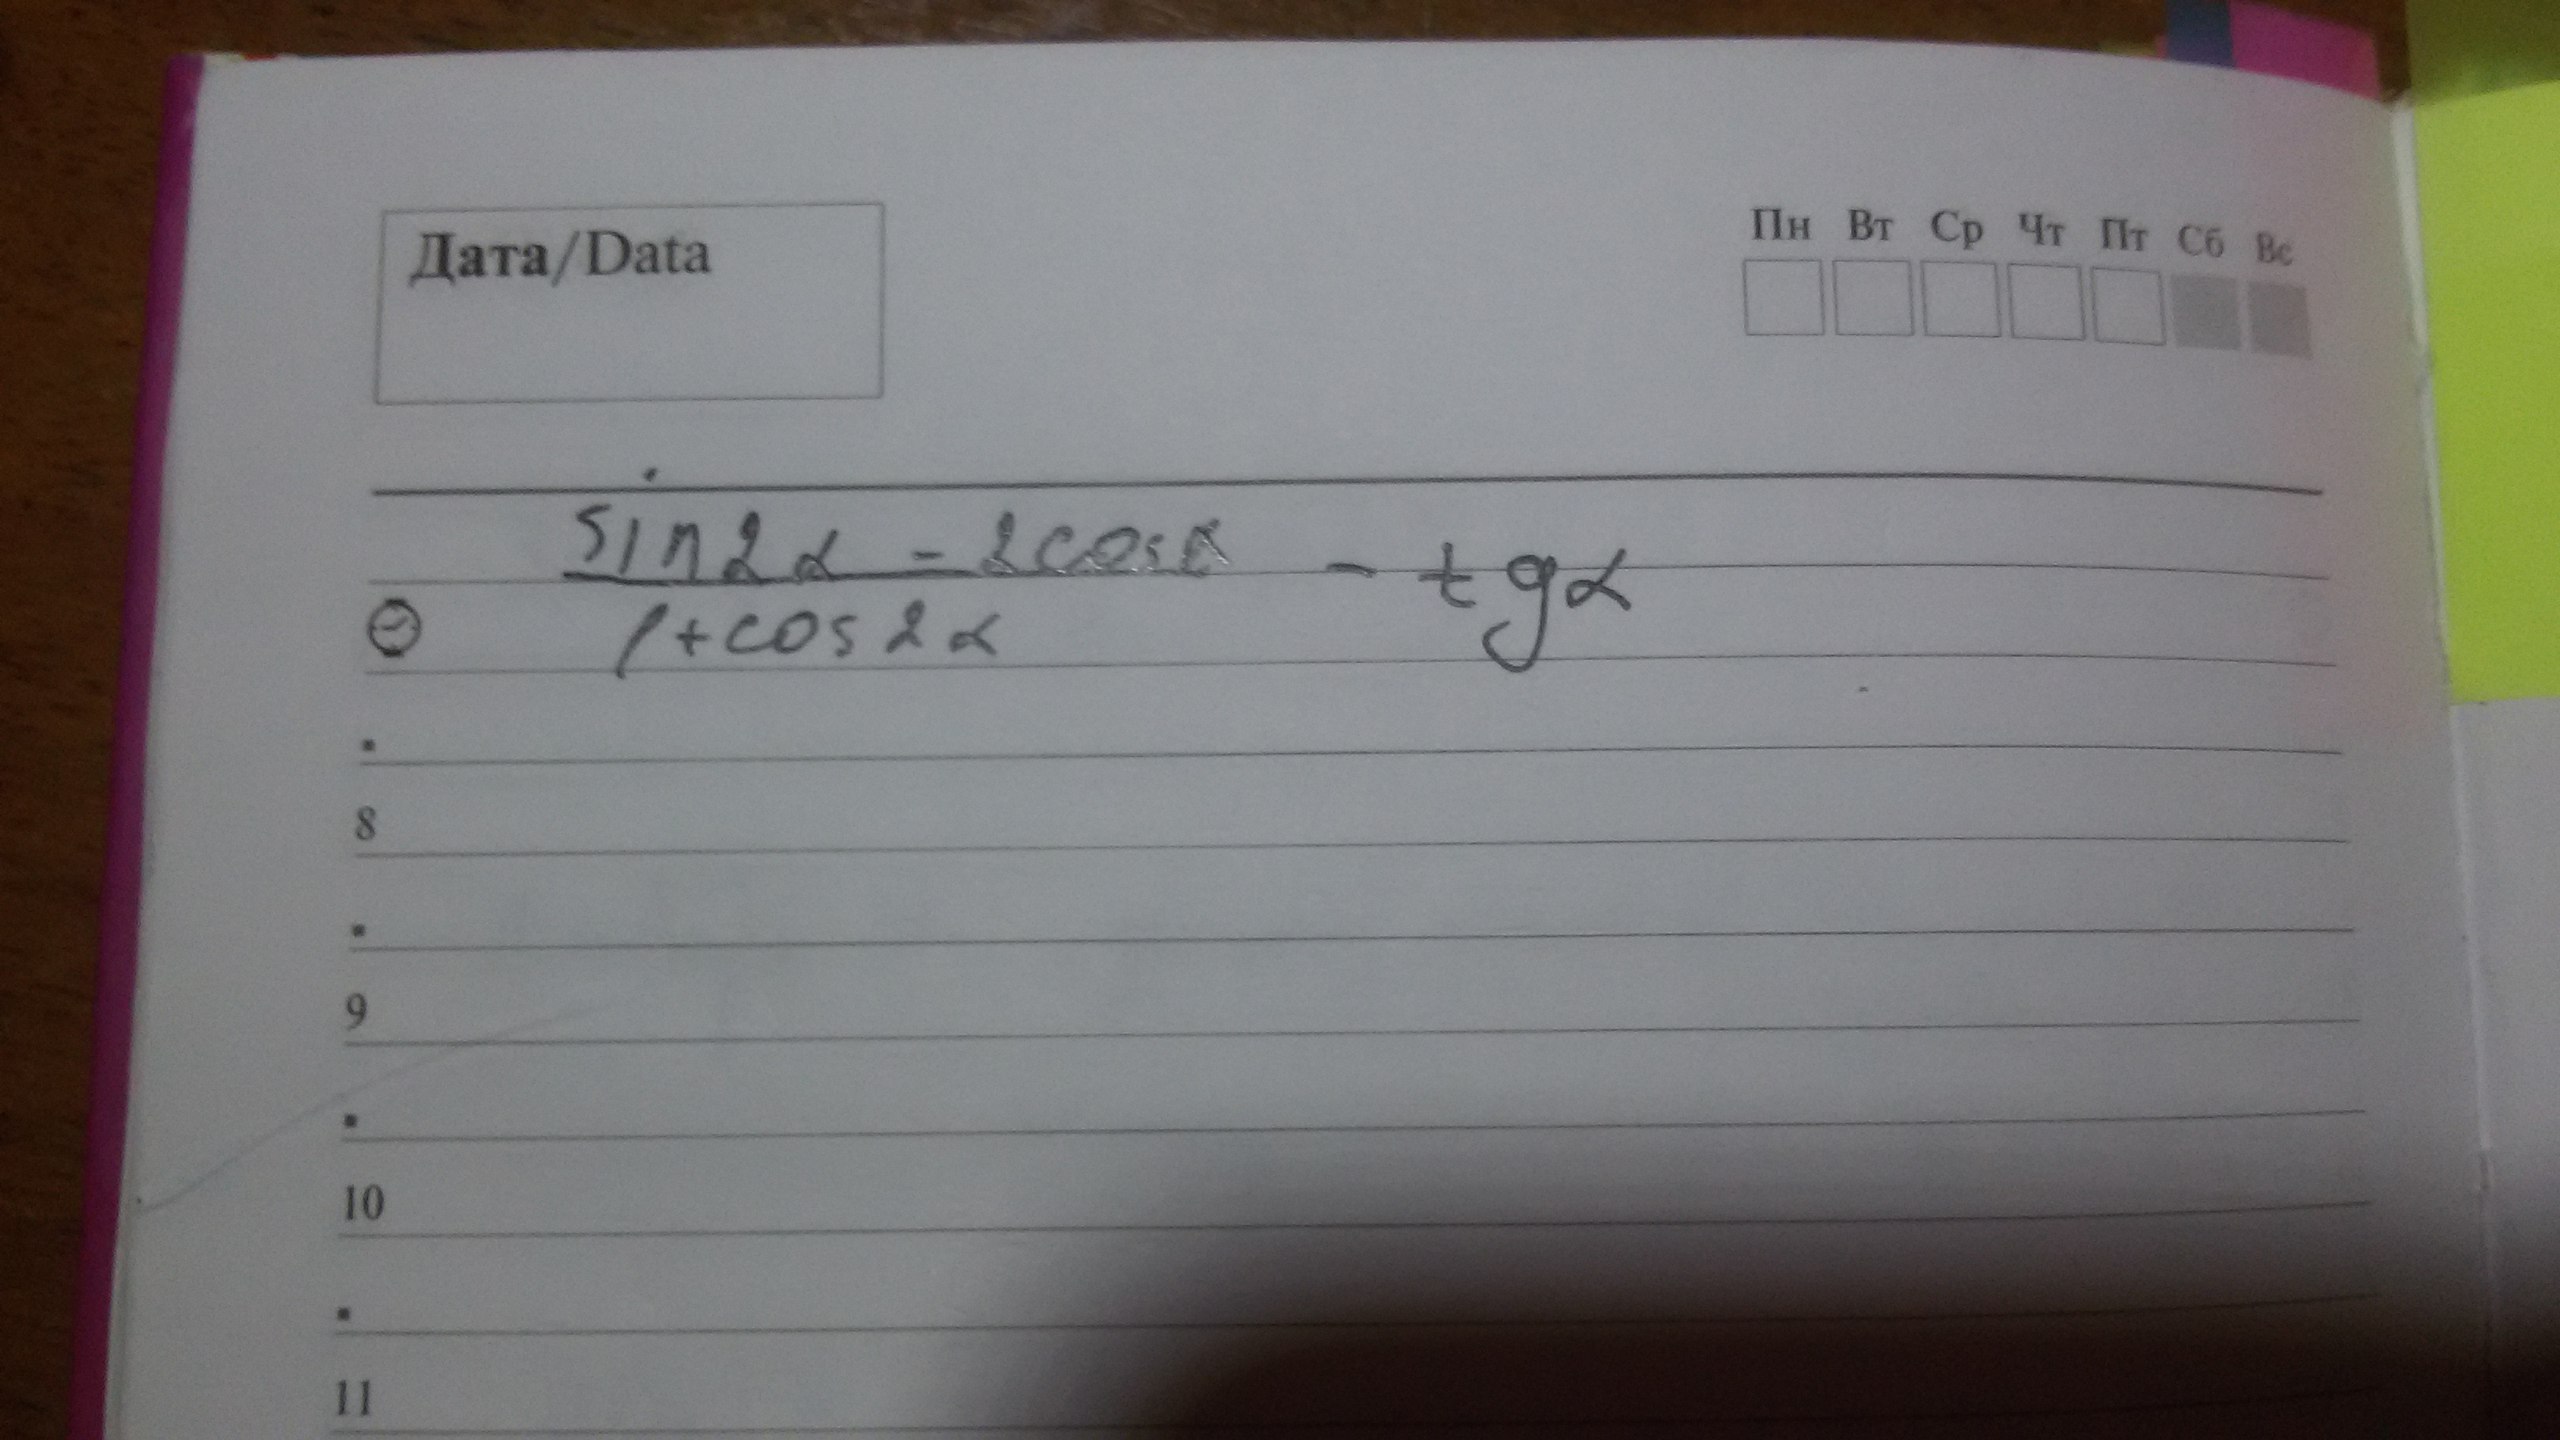 Дата/Data
Пн Вт Ср Чт Пт Сб Вс
sin2α - 2cosα - tgα
1+cos2α
8
9
10
11